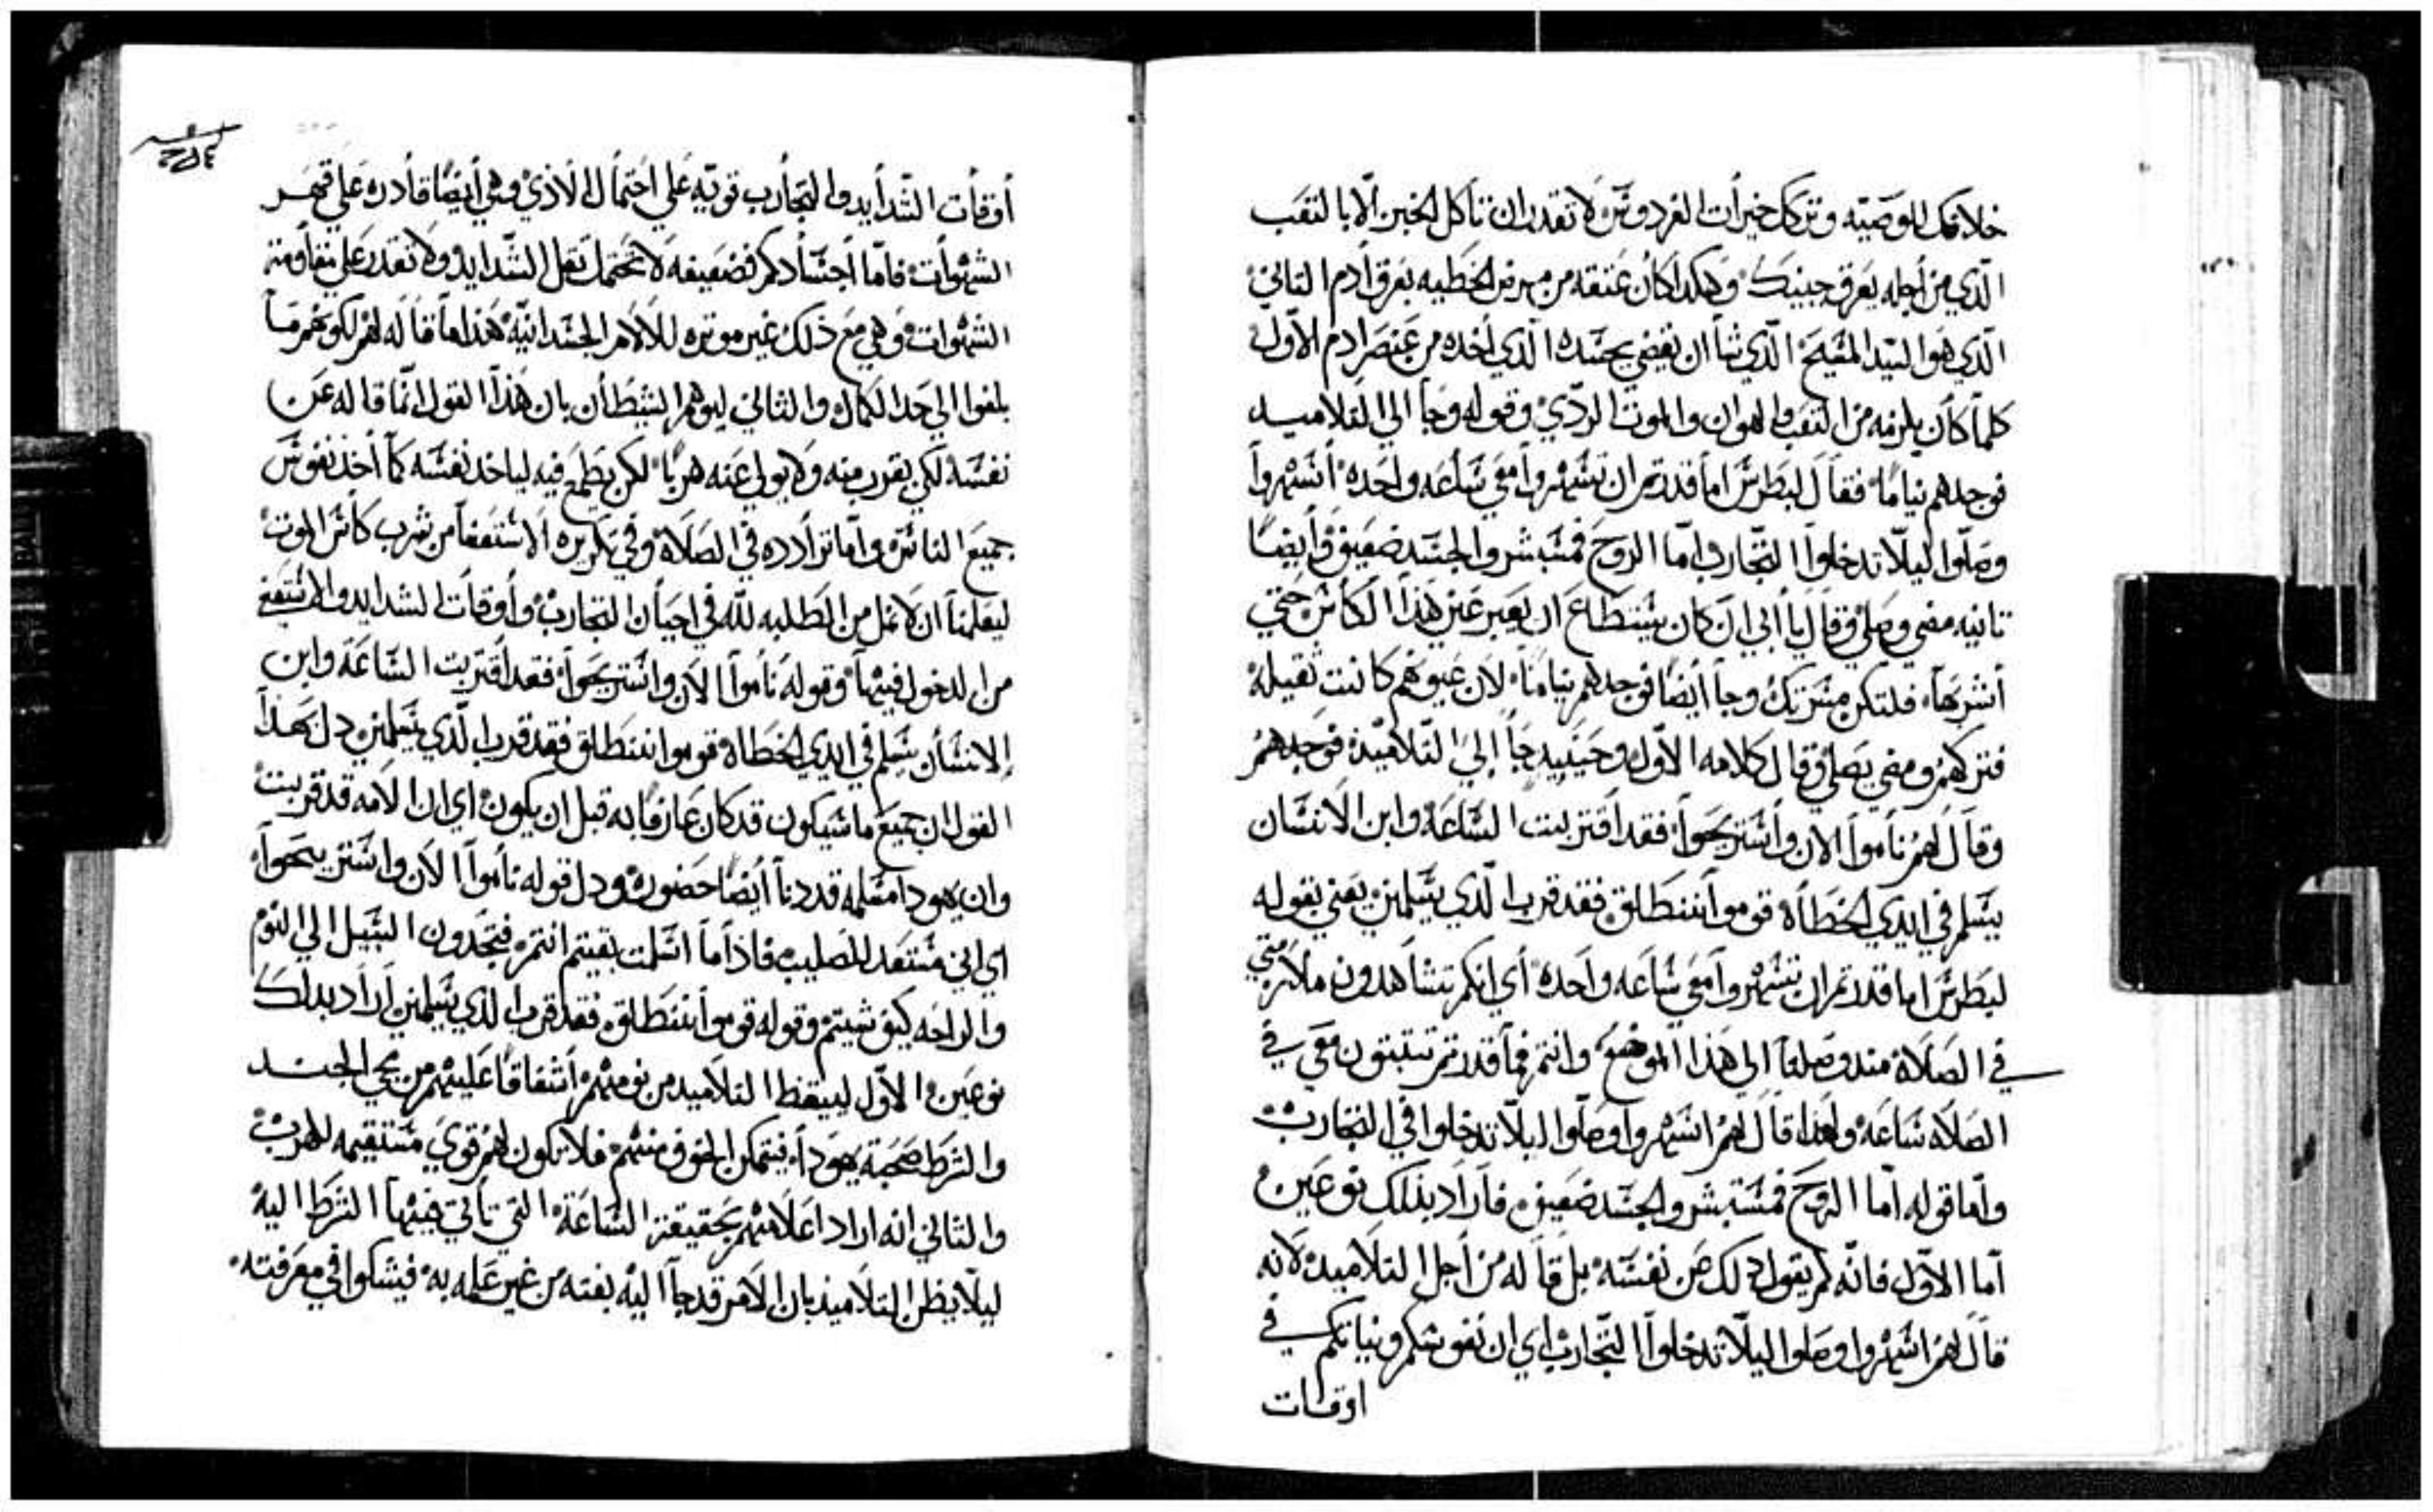 خلافك الوصيه وترك كل خيرات الفردوس لا تقدر ان تاكل الخبز الّا بالتعب
الّذي من أجله يعرق جبينك وهكذا كان عتقه من مرض الخطيه بعرق أدم التاني
الّذي هوا السّيد المسّيح الّذي شأ ان يغضي بجسّده الّذي أخده من عنصر ادم الاوّل
كلمأ كان يلزمه من التعب والهوان والموت الردّي وقوله وجأ الي التلاميد
فوجدهم نيامًا فقال لبطرسّ اما قدرتم ان تسّهروا معي سّاعه واحده أسّهروا
وصلّوا ليلّا تدخلوا التّجارب امّا الروح فمسّتبشر والجسّد ضعيف وأيضًا
تانيه مضي وصلي وقال يا أبي ان كان يسّتطاع ان يعبر عني هذا الكأس حتي
أشربهأ فلتكن مسّرتك وجأ أيضًا فوجدهم نيامًا لان عيونهم كانت ثقيله
فتركهم ومضي يصلي وقال كلامه الاوّل وحينيد جأ إلي التلاميد فوجدهم
وقال لهم نأموا الان وأسّتريحوا فقد اقتربت السّاعه وابن الانسّان
يسّلم في ايدي الخطاة قوموا ننطلق فقد قرب الّذي يسّلمني يعني بقوله
لبطرسّ اما قدرتم ان تسّهروا معي سّاعه واحده أي انكم تشاهدون ملازمتي
في الصلاة مند وصلنا الي هذا الموضع وانتم فما قدرتم تتبتون معي في
الصلاه سّاعه ولهذا قال لهم اسّهروا وصلّوا ليلّا تدخلوا في التجارب
وأما قوله امّا الروح فمسّتبشر والجسّد ضعيف فأراد بذلك نوعين
أما الاوّل فانّه لم يقول دلك عن نفسّه بل قاله من أجل التلاميد لانه
قال لهم اسّهروا وصلوا ليلّا تدخلوا التّجارب اي ان نفوسّكم ونياتكم في
اوقات
أوقات الشّدأيد والتجأرب قويّه علي احتمأل الأذي وهي أيضًا قأدره علي قهر
الشهوات فأمّا أجسّادكم فضعيفه لا تحتمل ثقل الشّدايد ولا تقدر علي مقأومة
الشهوات وهي مع ذلك غير موتره للالام الجسّدانيّه هذا ما قاله لهم لكونهم ما
بلغوا الي حد الكمال والثاني ليوهم الشيطأن بان هذا القول انّما قاله عن
نفسّه لكي يقرب منه ولا يولي عنه هربًا لكن يطمع فيه لياخد نفسّه كمأ أخذ نفوسّ
جميع النأسّ وامّا تراْدده في الصلاة وفي تكريره الاسّتعفأ من شرب كاسّ الموت
ليعلمنأ ان لا نمل من الطلبه للّه في احيأن التجارب وأوقات الشدايد والاسّتعفي
من الدخول فيهأ وقوله نأموا الان واسّتريحوا فقد أقتربت السّاعه وابن
الانسّان يسّلم في ايدي الخطاه قوموا ننطلق فقد قرب الّذي يسّلمني دل بهذا
القول ان جميع ما سّيكون قد كان عارفًا به قبل ان يكون اي ان الامه قد قربت
وان يهودا مسّلمه قد دنا أيضًا حضوره ودل قوله نأموا الان واسّتريحوا
اي اني مسّتعد للصليب فاذا ما اسّلمت بقيتم انتم فتجدون السّبيل الي النوم
والراحه كيف شيتم وقوله قوموا ننطلق فقد قرب الذي يسّلمني أرأد بدلك
نوعين الاوّل ليتيقظ التلاميد من نومهم اشفاقًا عليهم من مجي الجند
والشرط صحبة يهودا فيتمكن الخوف منهم فلا تكون لهم قوي مسّتقيمه للهرب
والتاني انه اراد اعلامهم بحقيقة السّاعة التي تأتي فيهأ الشرط اليه
ليلّا يظن التلاميد بان الامر قد جأ اليه بغته من غير علمه به فيشكوا في معرفته